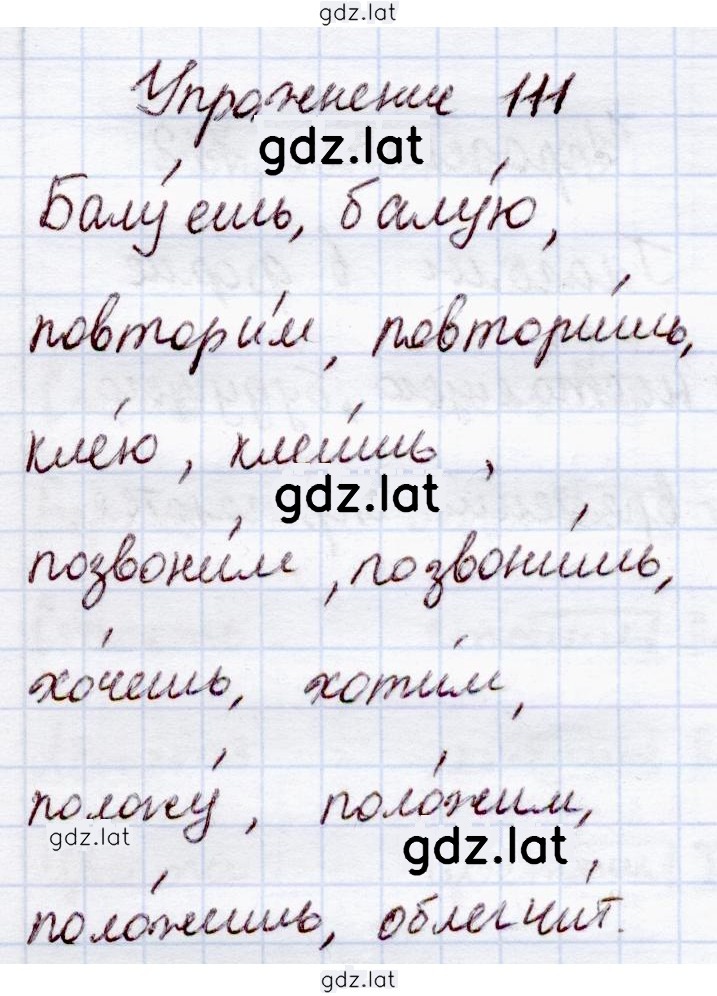 gdz.lat
Упражнение 111
gdz.lat
Балу́ешь, балу́ю,
повтори́м, повтори́шь,
кле́ю, клеи́шь,
gdz.lat
позвони́м, позвони́шь,
хо́чешь, хоти́м,
положу́, поло́жим,
gdz.lat
gdz.lat
поло́жишь, облегчи́т.
gdz.lat